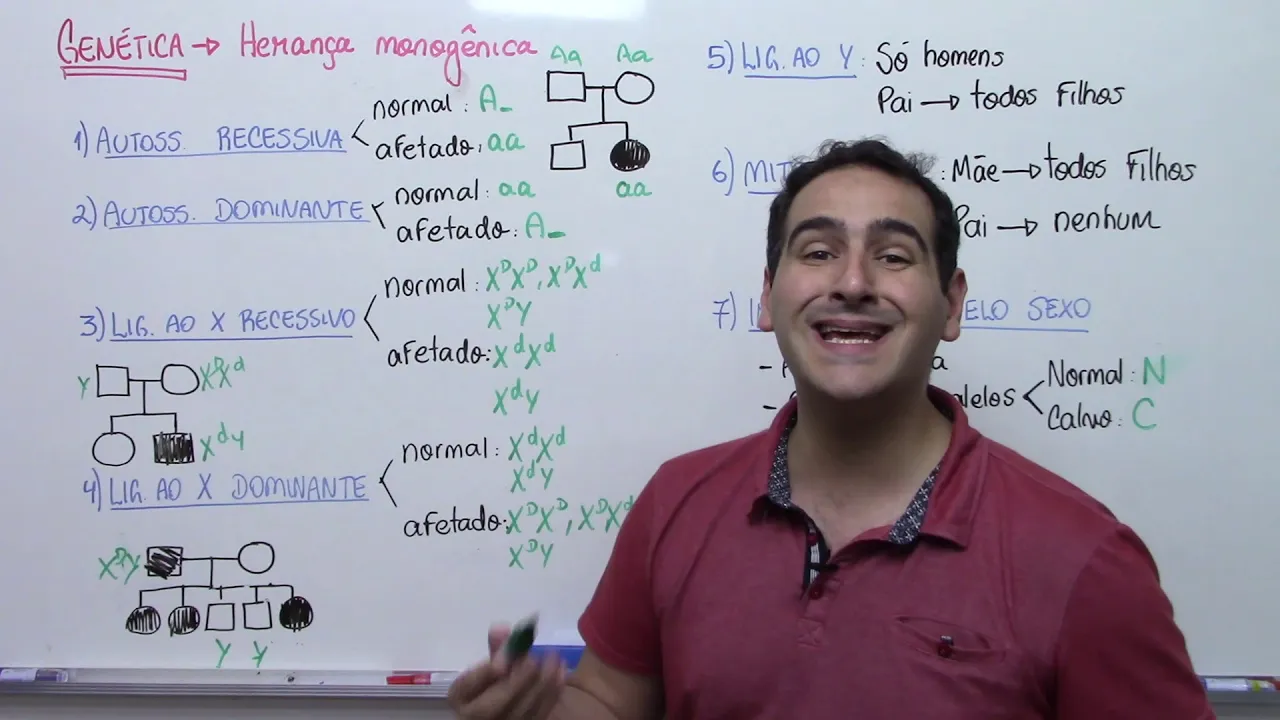 GENÉTICA → Herança monogênica
1) AUTOSS. RECESSIVA
normal: A_
afetado: aa
Aa Aa
aa
2) AUTOSS. DOMINANTE
normal: aa
afetado: A_
3) LIG. AO X RECESSIVO
normal: XᴰXᴰ, XᴰXᵈ
XᴰY
afetado: XᵈXᵈ
XᵈY
Y XᴰXᵈ
XᵈY
4) LIG. AO X DOMINANTE
normal: XᵈXᵈ
XᵈY
afetado: XᴰXᴰ, XᴰXᵈ
XᴰY
XᴰY
Y Y
5) LIG. AO Y: Só homens
Pai → todos Filhos
6) : Mãe → todos Filhos
Pai → nenhum
7) SEXO
Normal: N
Calvo: C